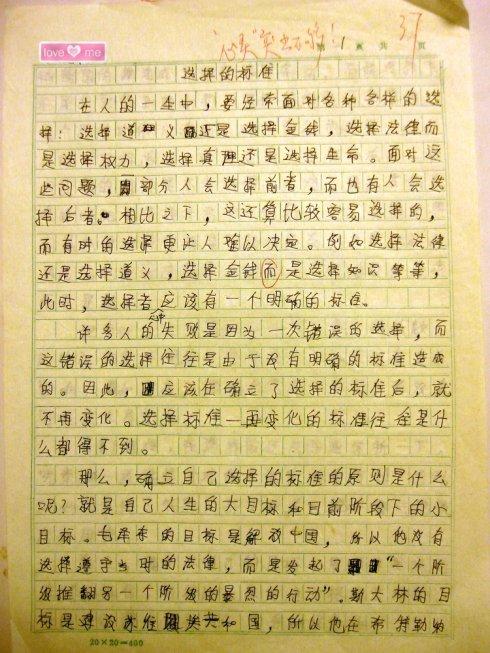 love me
"心灵"突出不够!
37
第 1 页 共 页
选择的标准
在人的一生中，要经常面对各种各样的选
择：选择道义还是选择金钱，选择法律而
是选择权力，选择真理还是选择生命。面对这
些问题，部分人会选择前者，而也有人会选
择后者。相比之下，这还算比较容易选择的，
而有时的选择更让人难以决定。例如选择法律
还是选择道义，选择金钱而是选择知识等等，
此时，选择者应该有一个明确的标准。
许多人的失败是因为一次错误的选择，而
这错误的选择往往是由于没有明确的标准造成
的。因此，应该在确立了选择的标准后，就
不再变化。选择标准一再变化的标准往往是什
么都得不到。
那么，确立自己选择的标准的原则是什么
呢？就是自己人生的大目标和目前阶段下的小
目标。毛泽东的目标是解放中国，所以他没有
选择遵守当时的法律，而是发起了"一个阶
级推翻另一个阶级的暴烈的行动"。斯大林的目
标是建设苏维埃共和国，所以他在希特勒
20×20=400